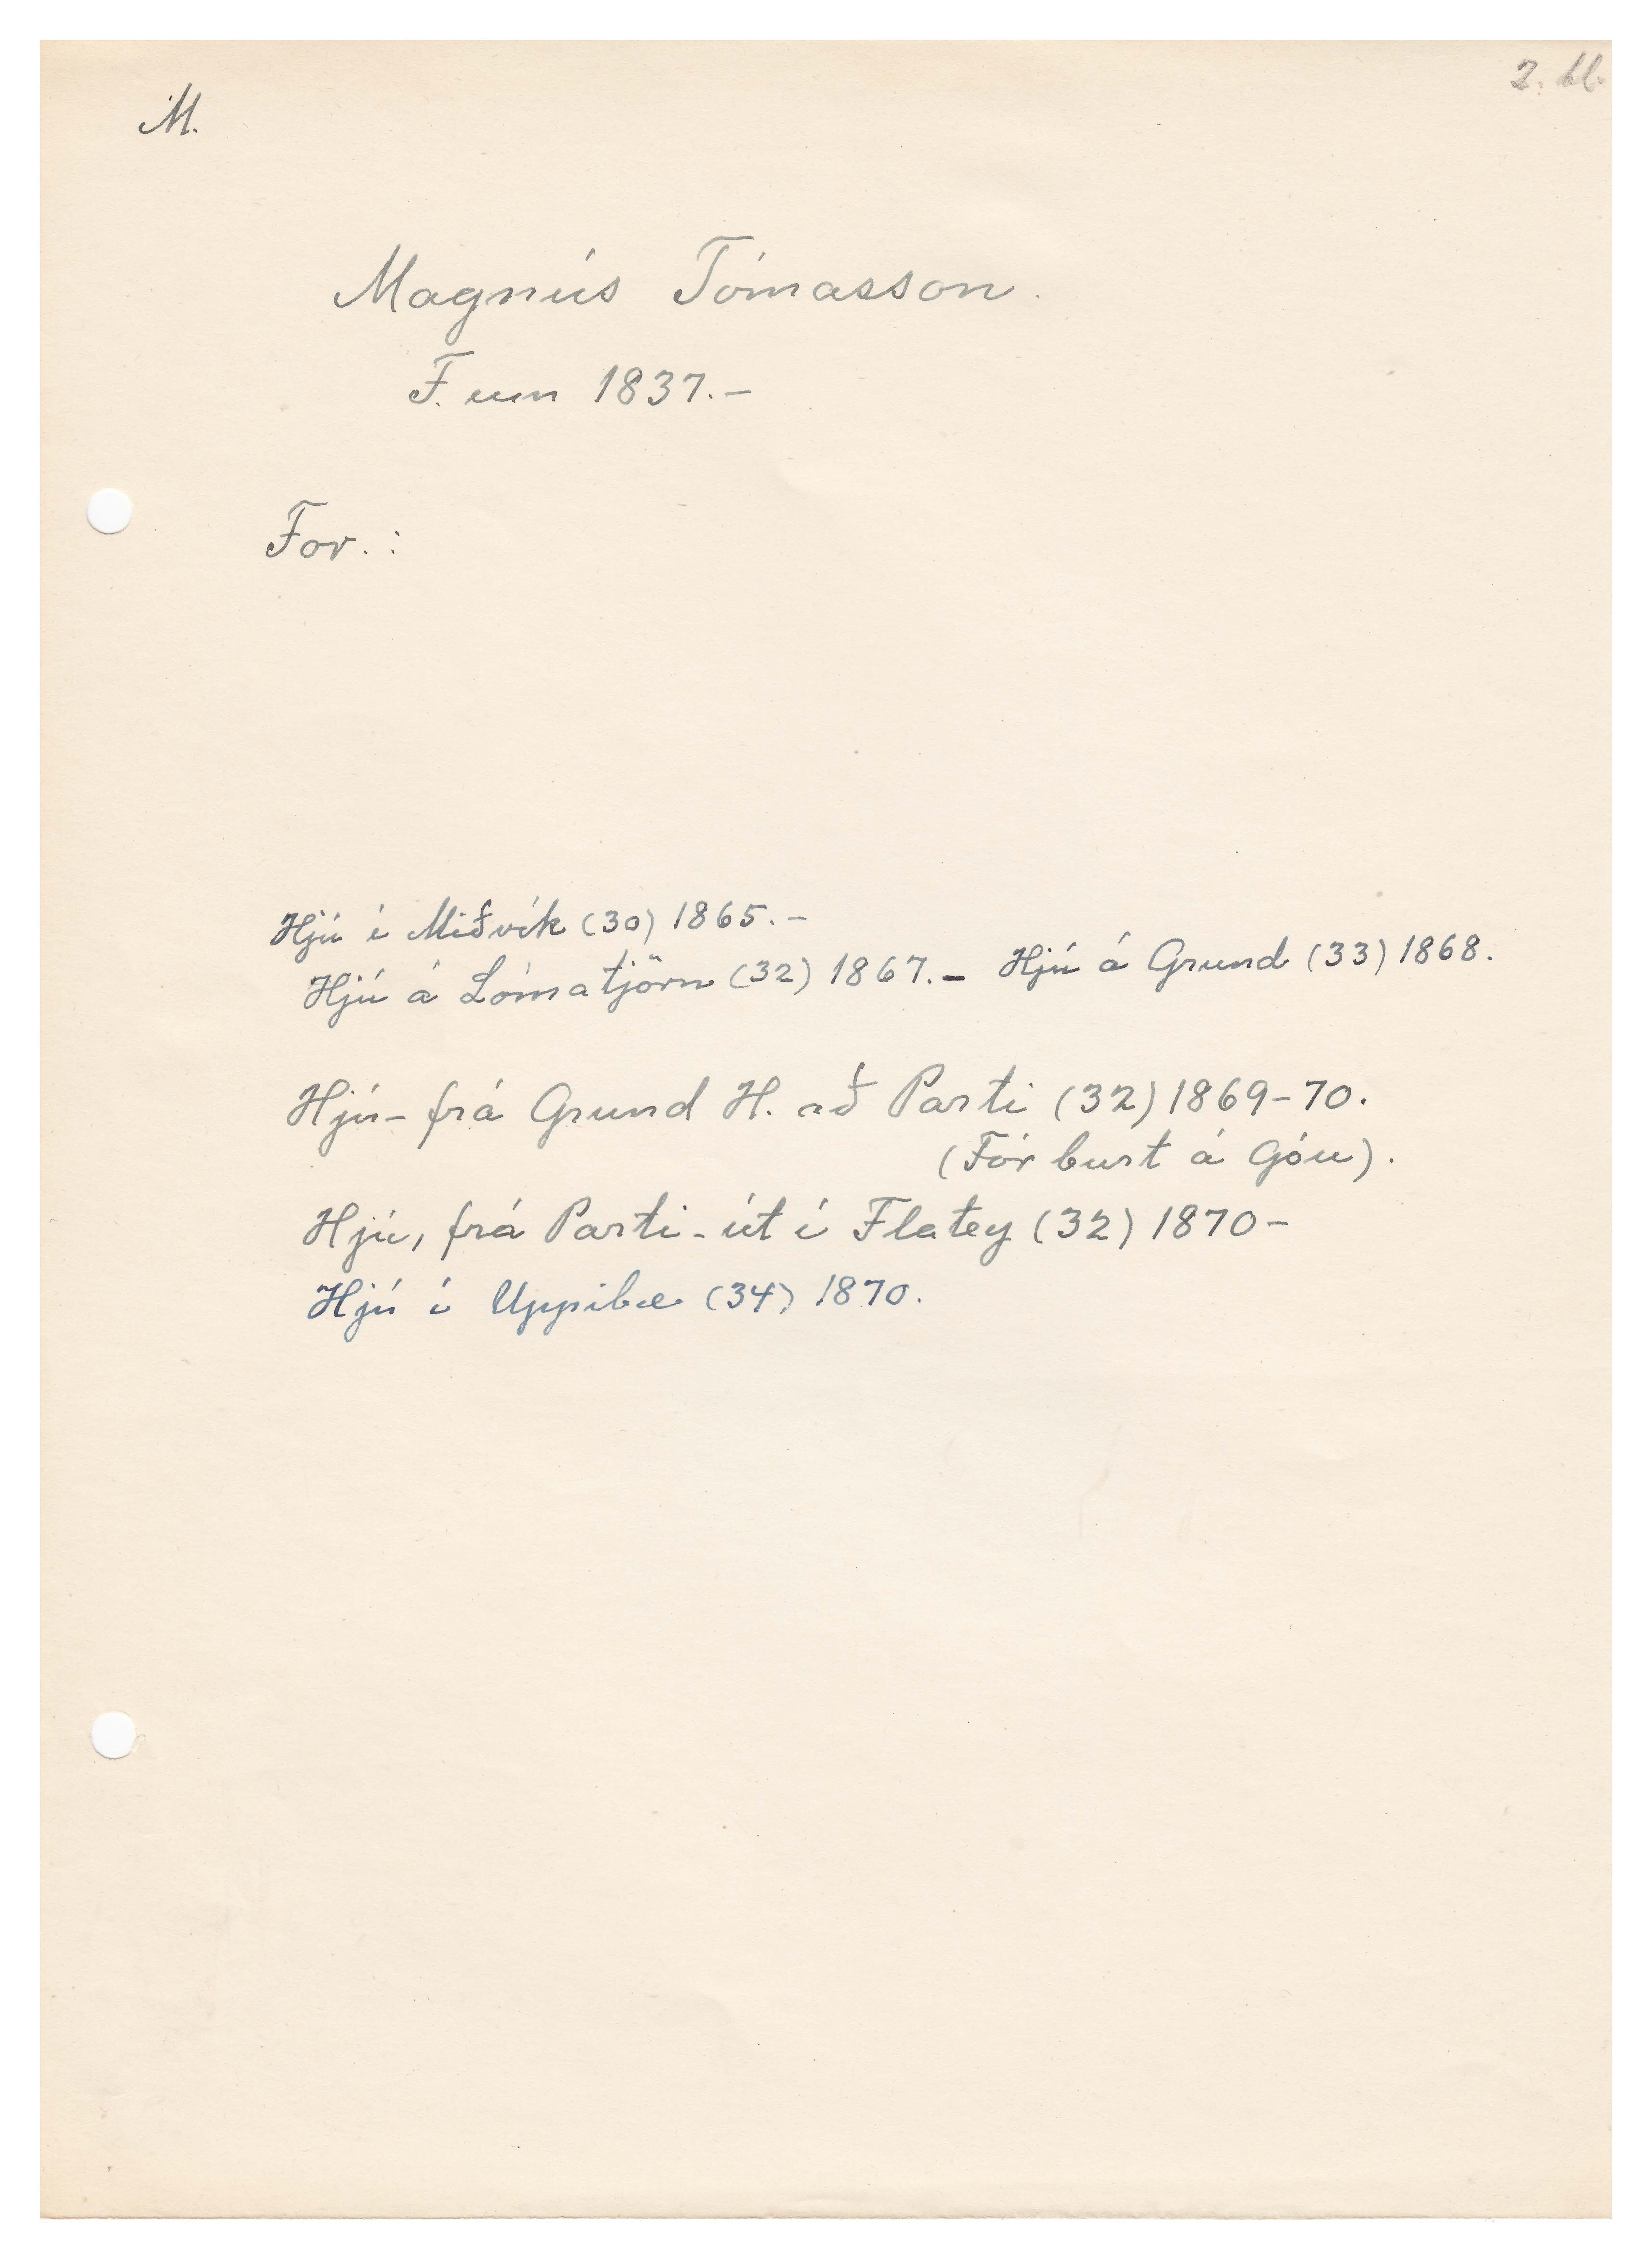 2. bl.
M.
Magnús Tómasson.
F. um 1837.-
For.:
Hjú í Miðvík (30) 1865.-
Hjú á Lómatjörn (32) 1867.- Hjú á Grund (33) 1868.
Hjú- frá Grund H. að Parti (32) 1869-70.
(Fór burt á Góu).
Hjú, frá Parti - út í Flatey (32) 1870-
Hjú í Uppibæ (34) 1870.